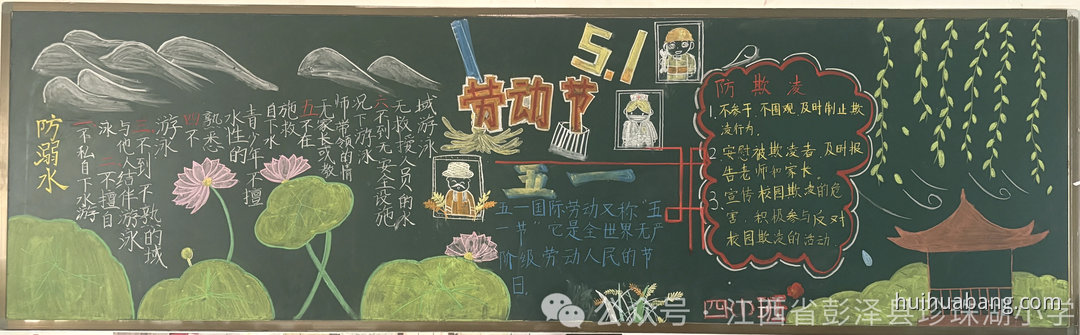 防溺水
一不私自下水游
泳 二不擅自
与他人结伴游泳
三不到不熟的域
游泳
四不
熟悉
水性的
青少年不擅
自下水
施救
五不在
无家长或教
师带领的情
况下游泳
六不到无安全设施
无救援人员的水
域游泳
5.1
劳动节
五一
五一国际劳动又称"五
一节"它是全世界无产
阶级劳动人民的节
日。
防欺凌
1.不参于、不围观、及时制止欺
凌行为.
2.安慰被欺凌者,及时报
告老师和家长。
3.宣传校园欺凌的危
害,积极参与反对
校园欺凌的活动
四班
公众号·江西省彭泽县珍珠湖小学
huihuabang.com